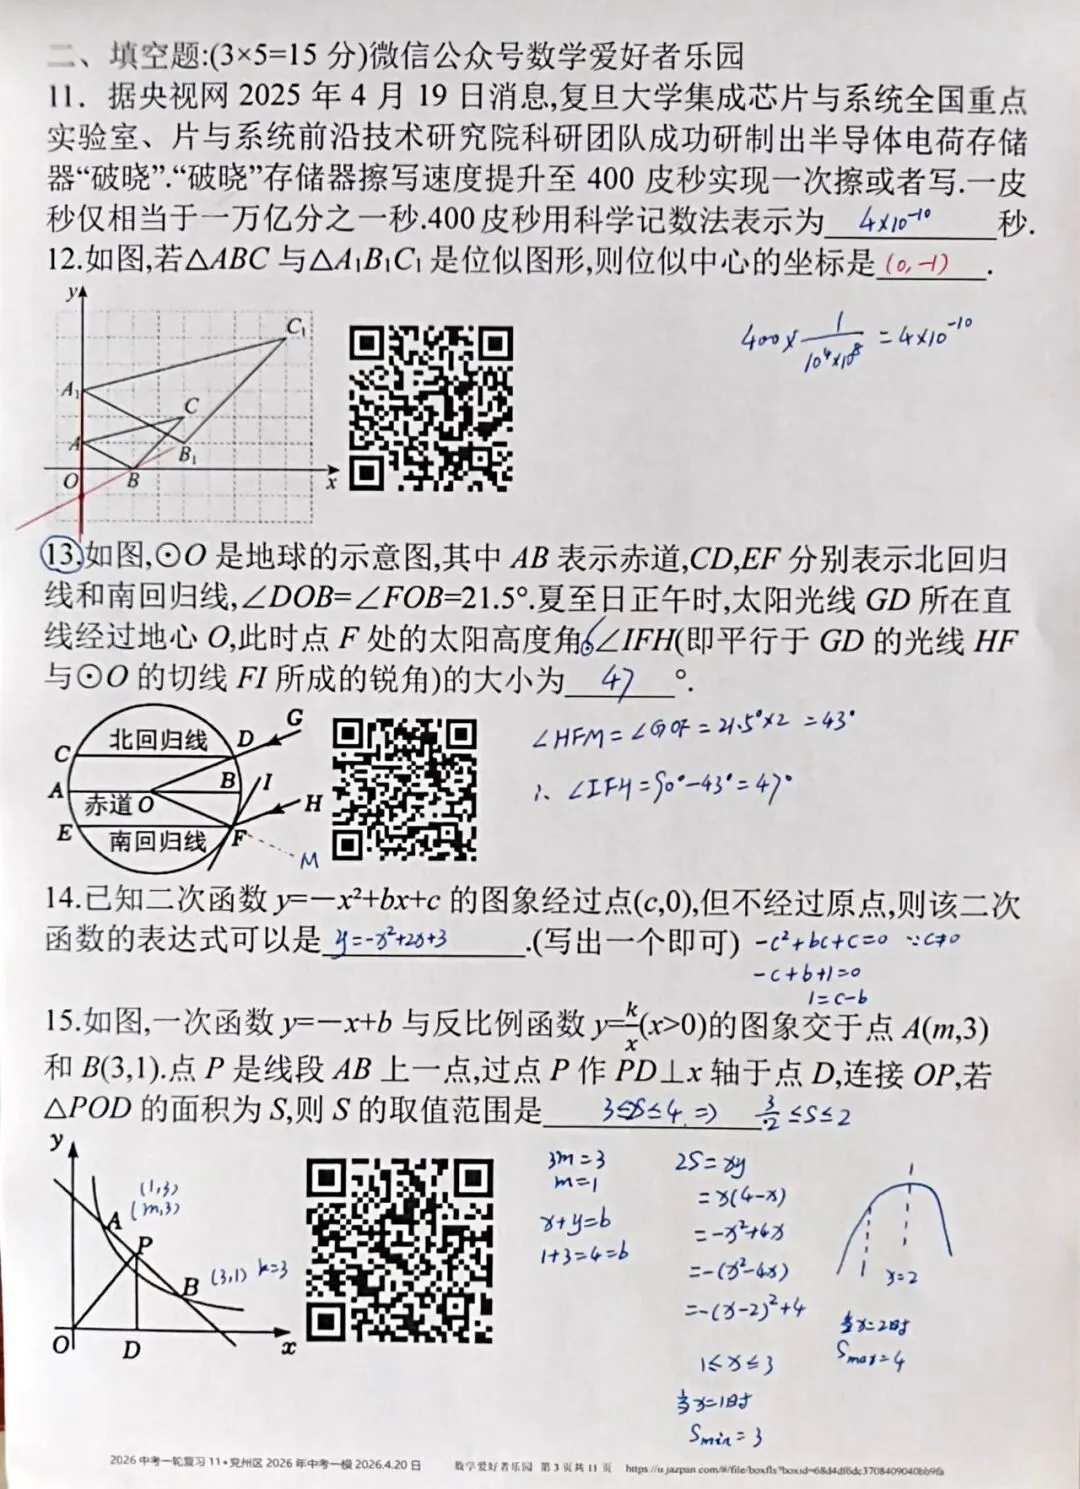 二、填空题:(3×5=15 分)微信公众号数学爱好者乐园
11. 据央视网 2025 年 4 月 19 日消息,复旦大学集成芯片与系统全国重点
实验室、片与系统前沿技术研究院科研团队成功研制出半导体电荷存储
器“破晓”.“破晓”存储器擦写速度提升至 400 皮秒实现一次擦或者写.一皮
秒仅相当于一万亿分之一秒.400皮秒用科学记数法表示为 4×10⁻¹⁰ 秒.
12.如图,若△ABC 与△A₁B₁C₁ 是位似图形,则位似中心的坐标是 (0,-1) .
y
C₁
A₁
C
A
B₁
O
B
x
400×1/(10⁴×10⁸)=4×10⁻¹⁰
13.如图,⊙O 是地球的示意图,其中 AB 表示赤道,CD,EF 分别表示北回归
线和南回归线,∠DOB=∠FOB=21.5°.夏至日正午时,太阳光线 GD 所在直
线经过地心 O,此时点 F 处的太阳高度角∠IFH(即平行于 GD 的光线 HF
与⊙O 的切线 FI 所成的锐角)的大小为 47 °.
G
C 北回归线 D
A B I
赤道 O H
E 南回归线 F
M
∠HFM=∠GOF=21.5°×2=43°
∴ ∠IFH=90°-43°=47°
14.已知二次函数 y=-x²+bx+c 的图象经过点(c,0),但不经过原点,则该二次
函数的表达式可以是 y=-x²+2x+3 .(写出一个即可) -c²+bc+c=0 ∵c≠0
-c+b+1=0
1=c-b
15.如图,一次函数 y=-x+b 与反比例函数 y=k/x(x>0)的图象交于点 A(m,3)
和 B(3,1).点 P 是线段 AB 上一点,过点 P 作 PD⊥x 轴于点 D,连接 OP,若
△POD 的面积为 S,则 S 的取值范围是 3≤S≤4 ⇒ 3/2≤S≤2
y
(1,3)
(m,3)
A
P
B (3,1) k=3
O
D
x
3m=3
m=1
x+y=b
1+3=4=b
2S=xy
=x(4-x)
=-x²+4x
=-(x²-4x)
=-(x-2)²+4
1≤x≤3
当x=1时
Smin=3
x=2
当x=2时
Smax=4
2026 中考一轮复习 11•兖州区 2026 年中考一模 2026.4.20 日 数学爱好者乐园 第 3 页共 11 页